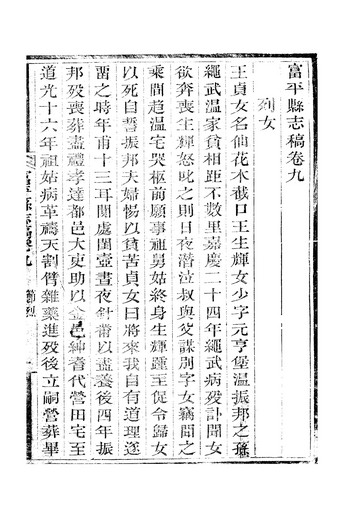 富平縣志稿卷九
列女
王貞女名仙花木截口王生輝女少字元亨堡溫振邦之孫
繩武溫家貧相距不數里嘉慶二十四年繩武病歿訃聞女
欲奔喪生輝怒叱之則日夜潛泣叔與父謀別字女竊聞之
乘間趨溫宅哭柩前願事祖舅姑終身生輝踵至促令歸女
以死自誓振邦夫婦惕以貧苦貞女曰將來我自有道理遂
留之時年甫十三耳閉處閫壼晝夜針黹以盡養後四年振
邦歿喪葬盡禮孝達都邑大吏助以金邑紳耆代營田宅至
道光十六年祖姑病革禱天割臂雜藥進歿後立嗣營葬畢
富平縣志稿卷九 節烈 一